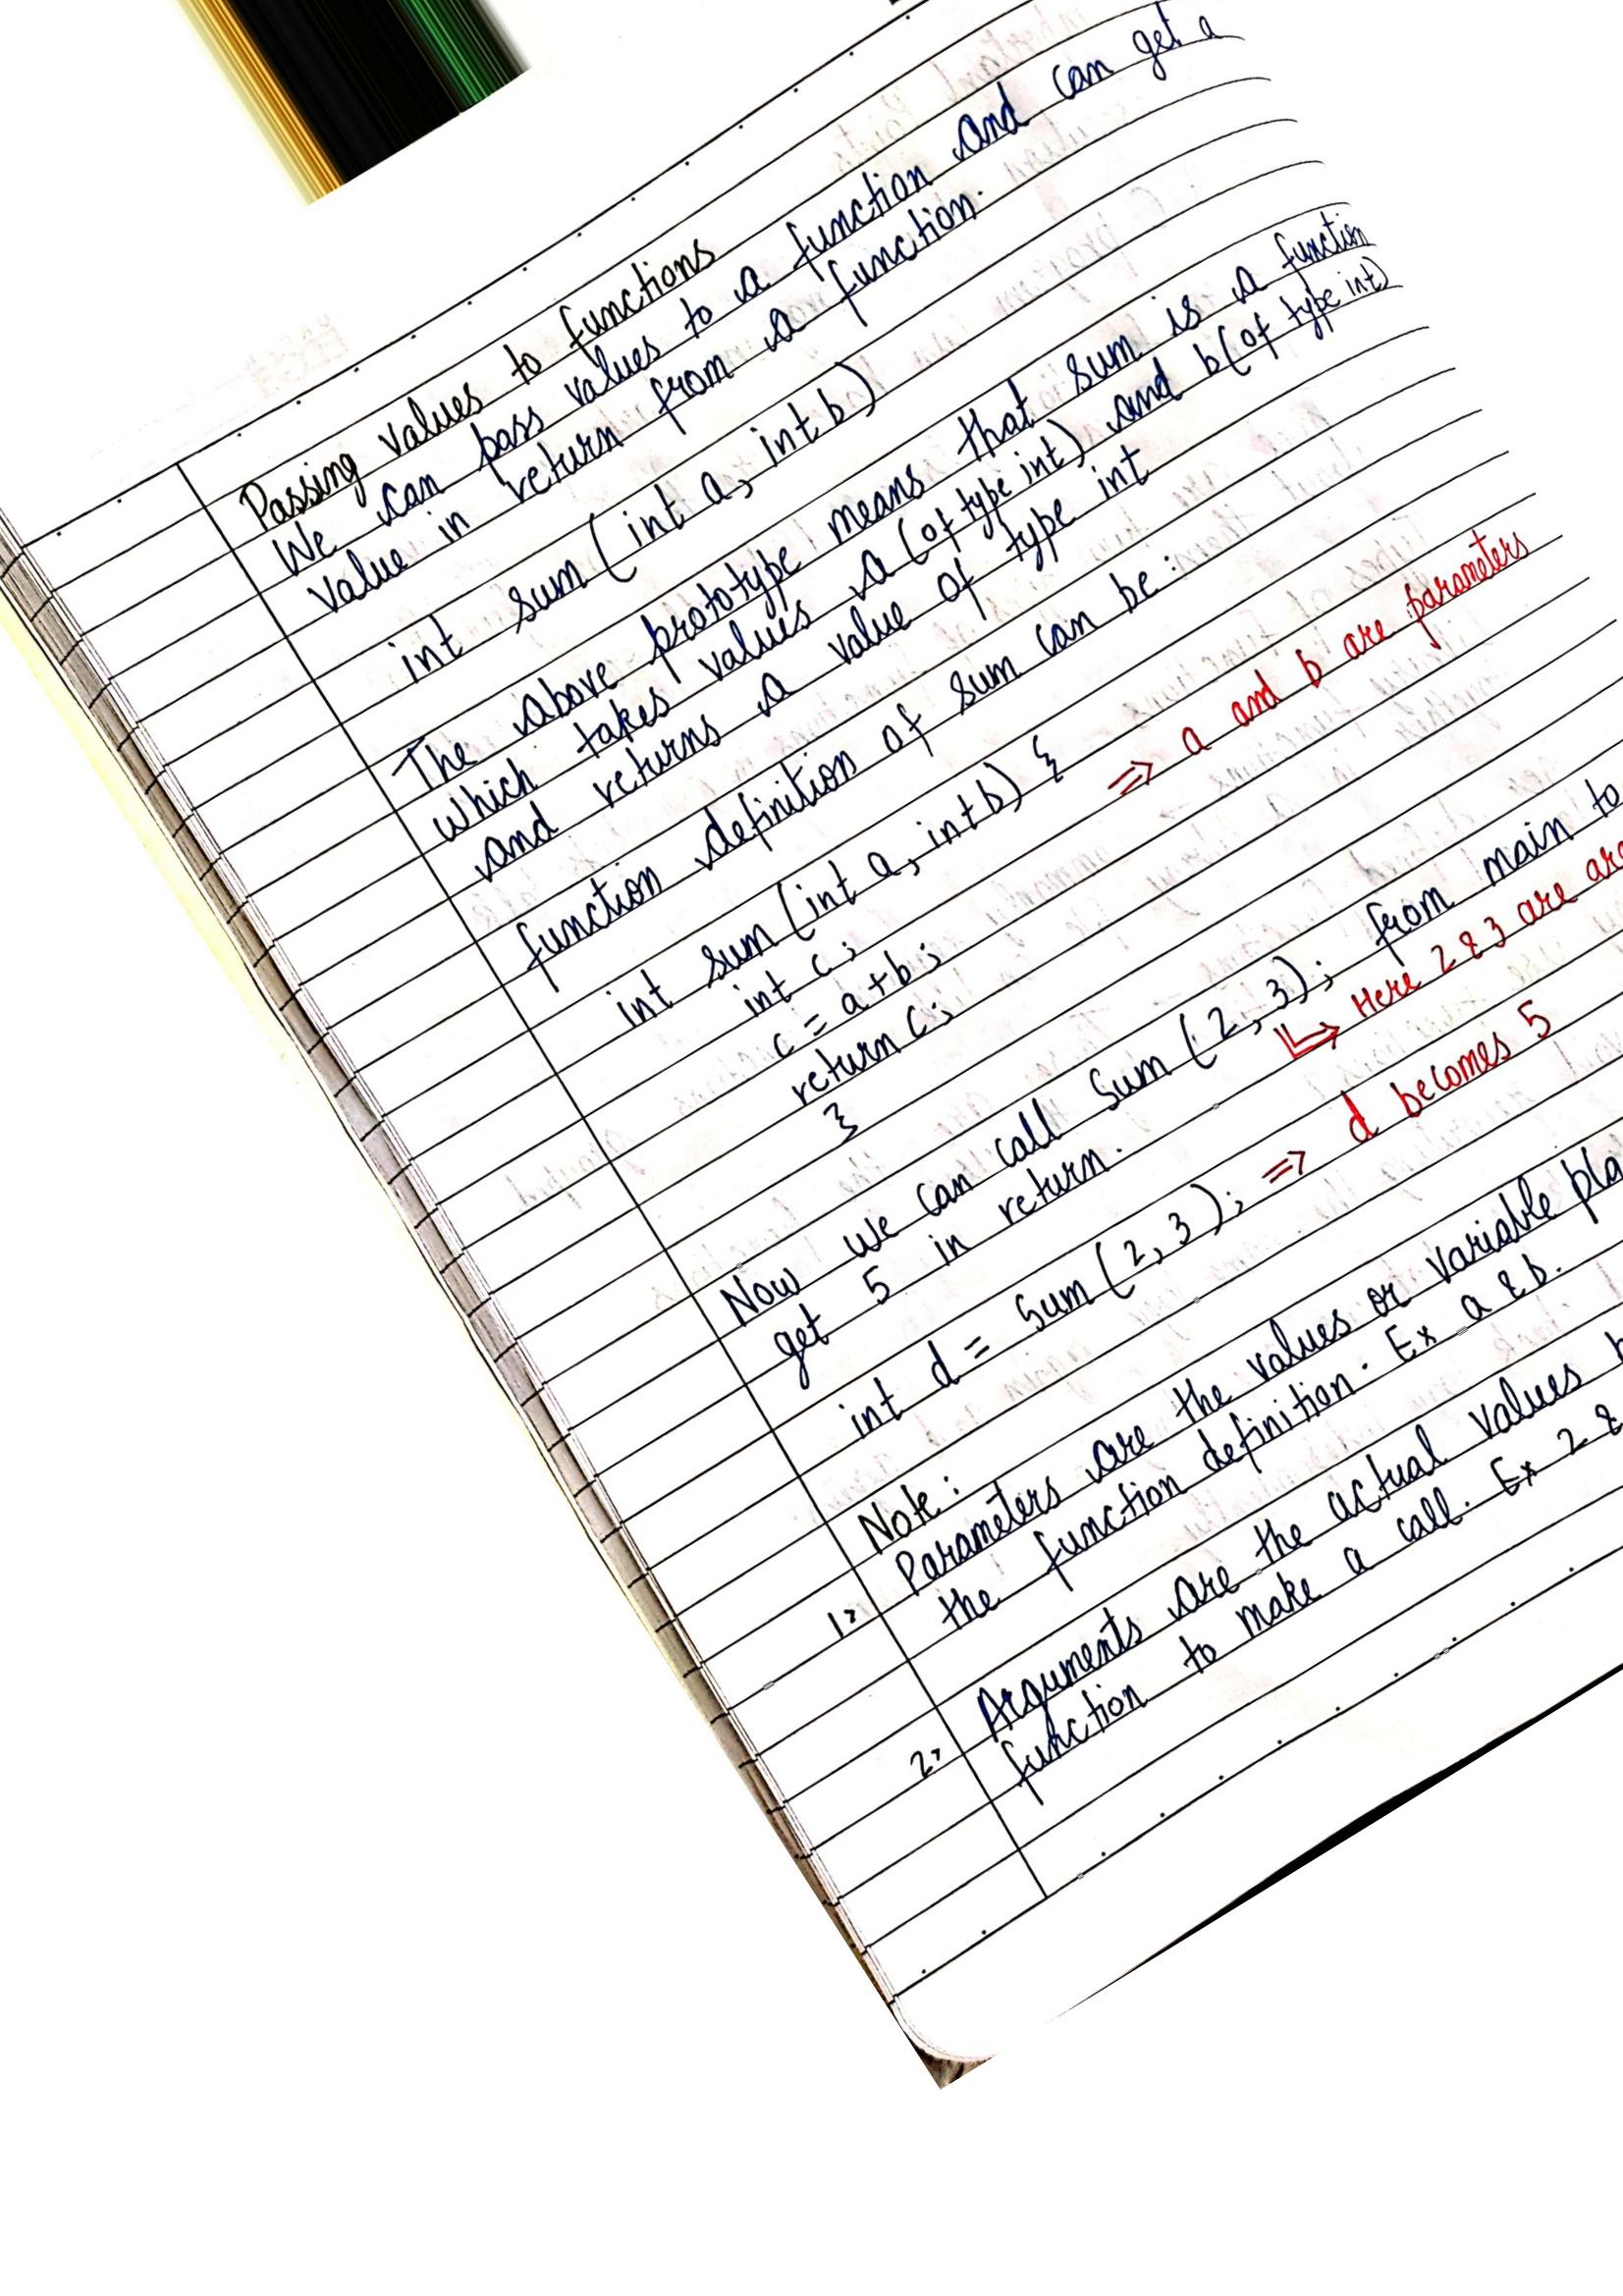 Passing values to functions
We can pass values to a function and can get a
value in return from a function.
int sum (int a, int b)
The above prototype means that sum is a function
which takes values a (of type int) and b (of type int)
and returns a value of type int
function definition of sum can be :
int sum (int a, int b) { ⇒ a and b are parameters
int c;
c = a+b;
return c;
}
Now we can call sum (2, 3); from main to
get 5 in return. ↳ Here 2 & 3 are
int d = sum (2, 3); ⇒ d becomes 5
Note :
1> Parameters are the values or variable
the function definition. Ex a & b.
2> Arguments are the actual values
function to make a call. Ex 2 &